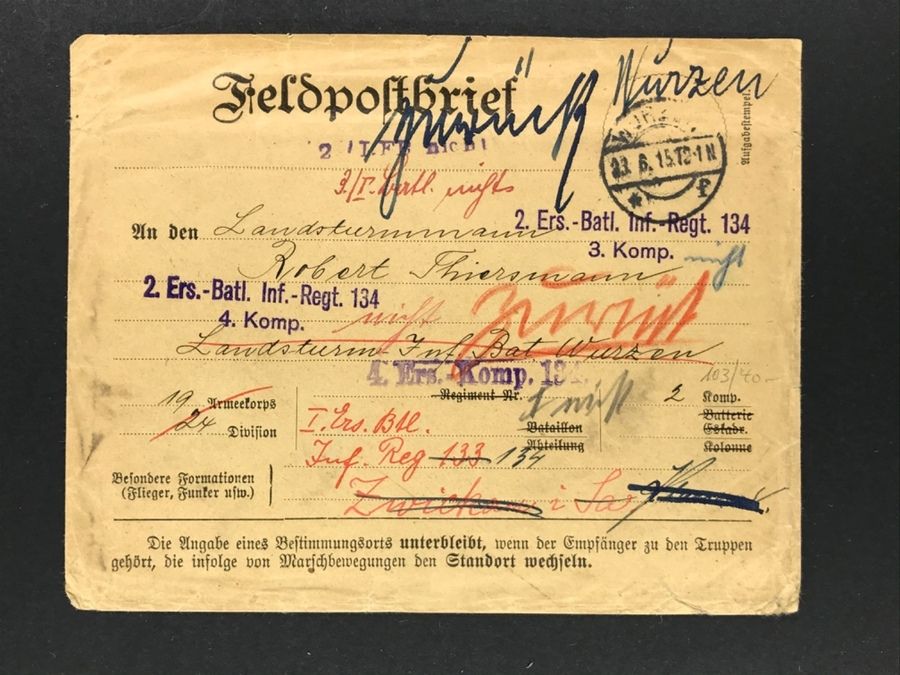 Feldpostbrief
zurück Wurzen
Aufgabestempel.
WURZEN
23. 6. 15.12-1N
* f
3./I. Batl. nichts
An den Landsturmmann
2. Ers.-Batl. Inf.-Regt. 134
3. Komp. nicht
Robert Thiersmann
2. Ers.-Batl. Inf.-Regt. 134
4. Komp. nicht
zurück
Landsturm Inf. Bat Wurzen
4. Ers. Komp. 134.
103/40-
19 Armeekorps
24 Division
Regiment Nr. nicht
2 Komp.
Bataillon
Batterie
Abteilung
Eskadr.
Kolonne
I. Ers. Btl.
Inf. Reg 133 134
Zwickau i Sa
Besondere Formationen
(Flieger, Funker usw.)
Die Angabe eines Bestimmungsorts unterbleibt, wenn der Empfänger zu den Truppen
gehört, die infolge von Marschbewegungen den Standort wechseln.